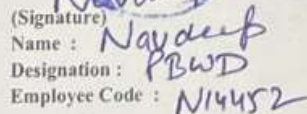 (Signature)
Name : Navdeep
Designation : PBWD
Employee Code : N14452